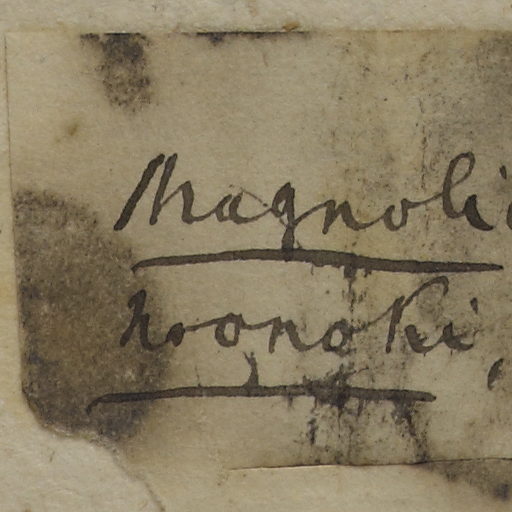 Magnolia
honoki,